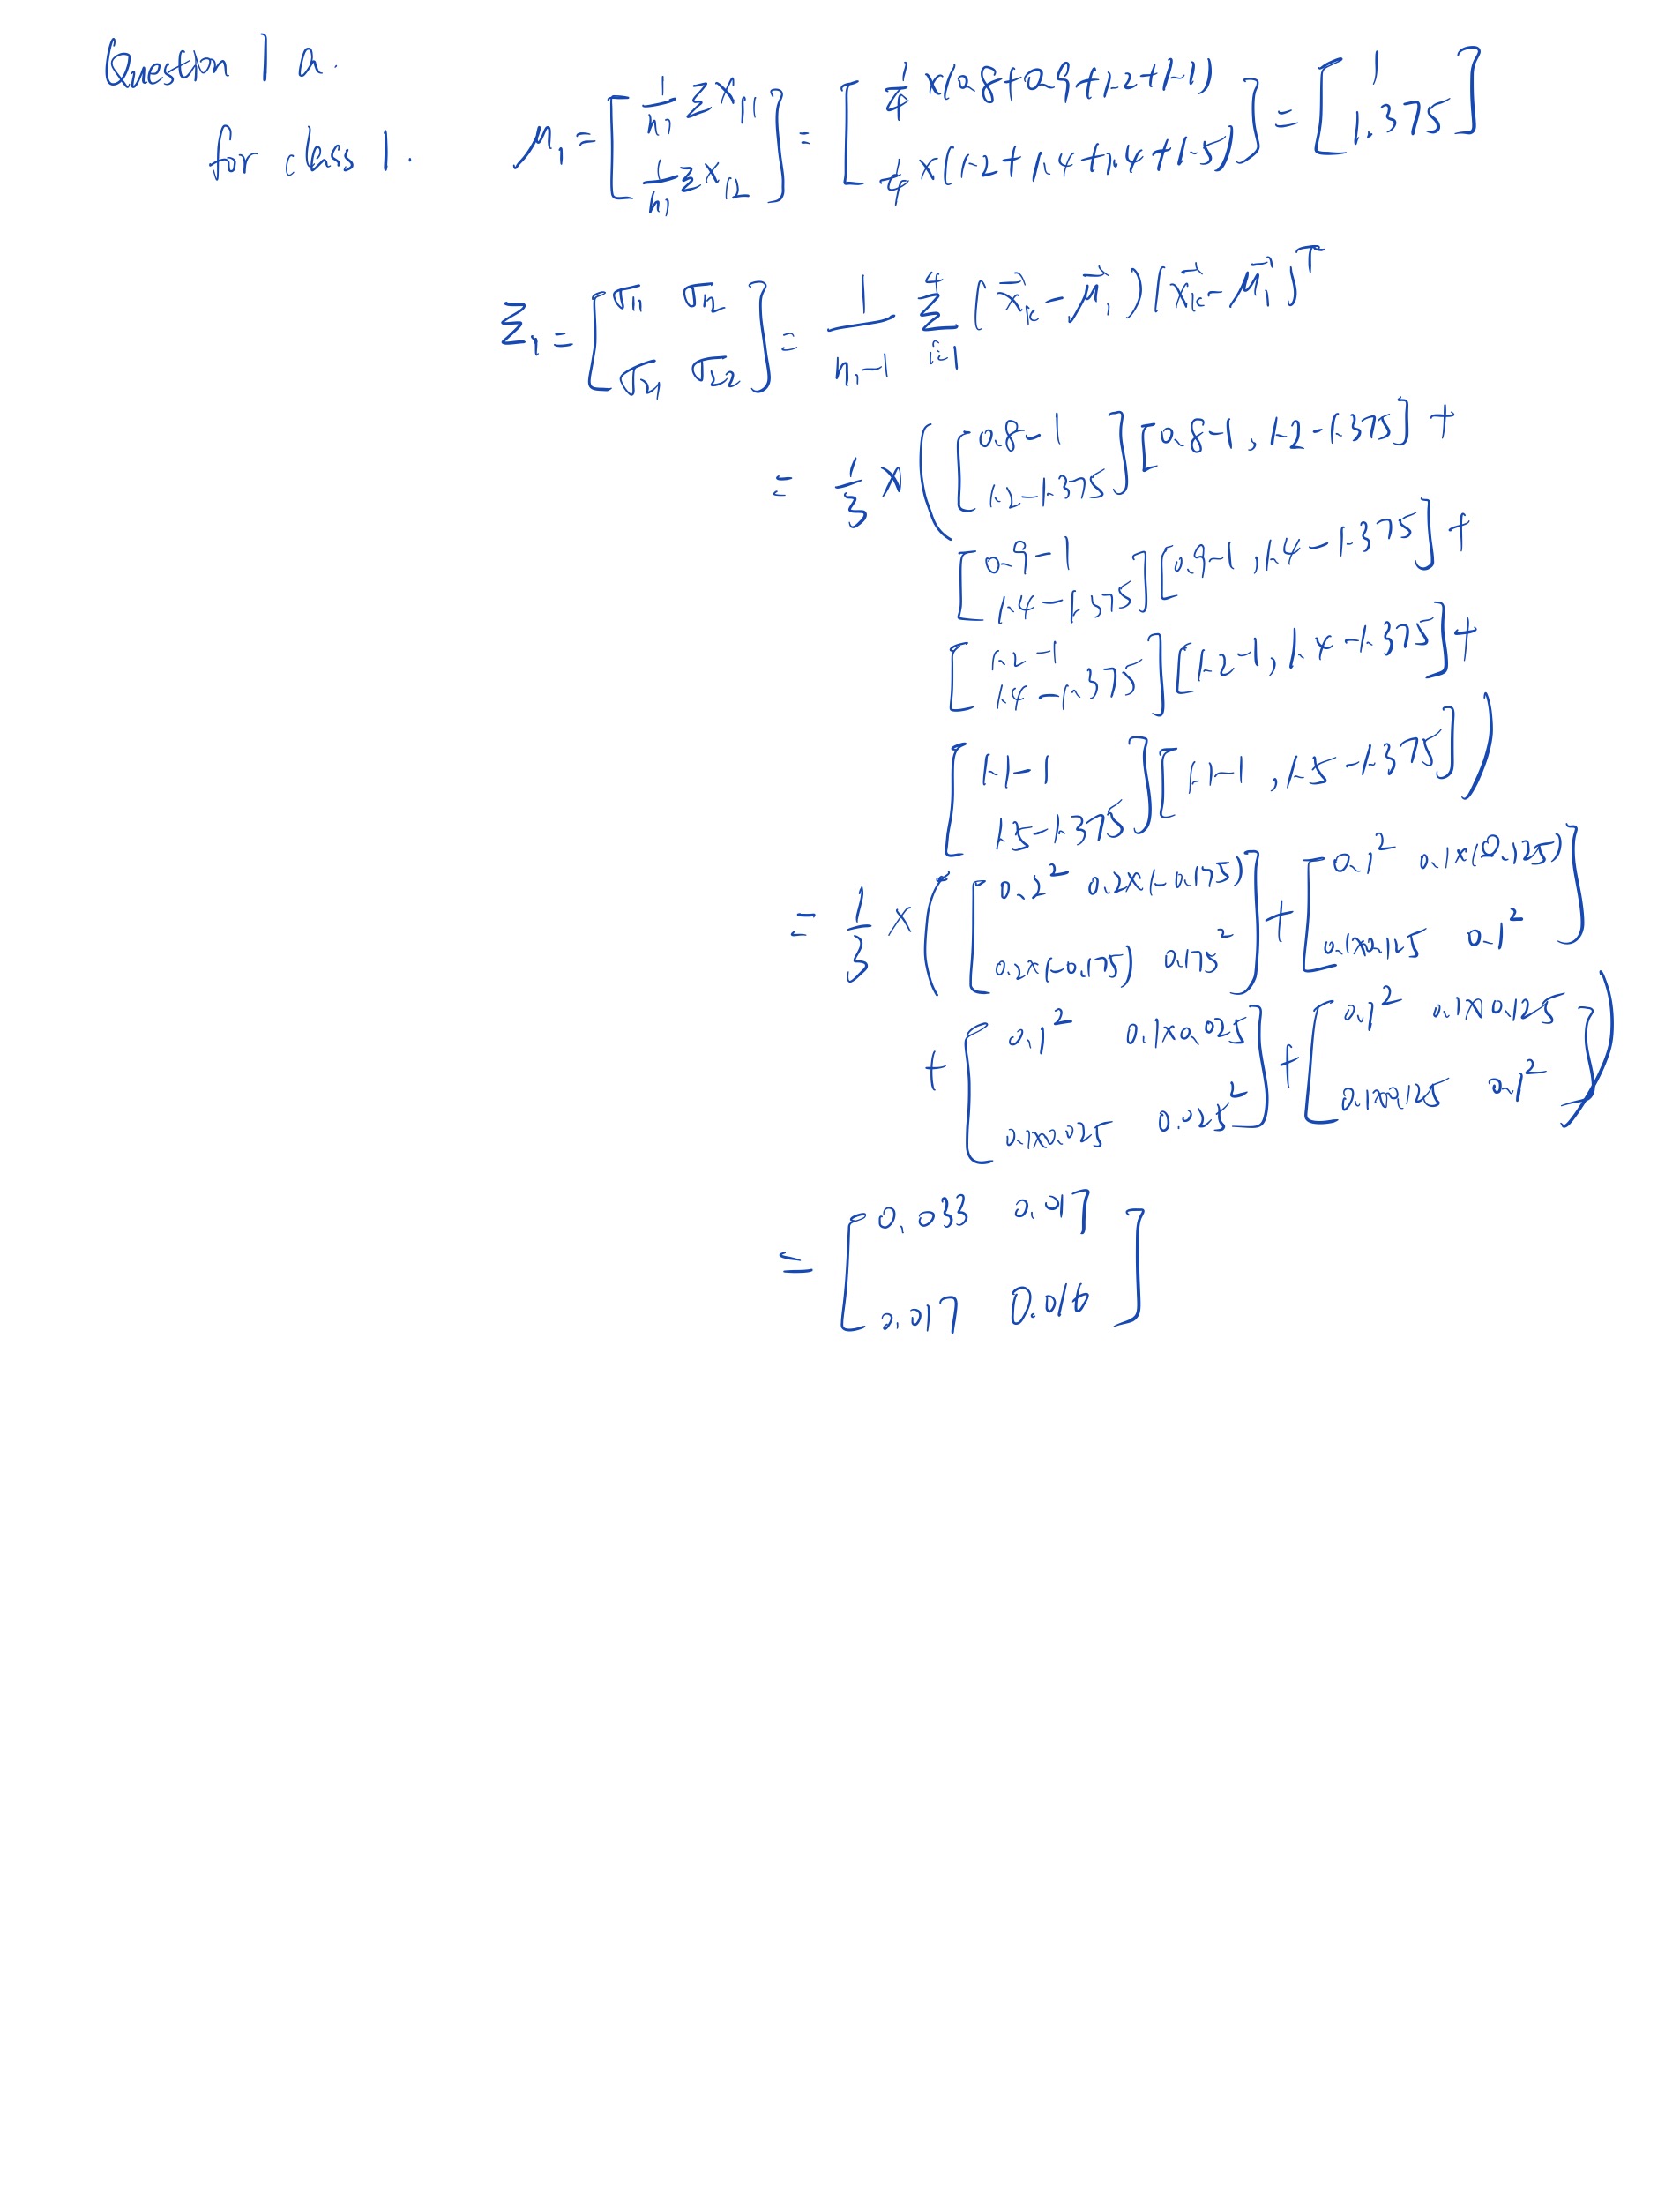 Question 1 a.
for class 1. μ₁ = [ 1/n₁ Σx₁₁ ; 1/n₁ Σx₁₂ ] = [ 1/4 ×(0.8+0.9+1.2+1.1) ; 1/4 ×(1.2+1.4+1.4+1.5) ] = [ 1 ; 1.375 ]
Σ₁ = [ σ₁₁ σ₁₂ ; σ₂₁ σ₂₂ ] = 1/(n₁-1) Σ_{i=1}^{4} (x⃗₁c - μ⃗₁)(x⃗₁c - μ⃗₁)ᵀ
= 1/3 × ( [ 0.8-1 ; 1.2-1.375 ] [0.8-1, 1.2-1.375] +
[ 0.9-1 ; 1.4-1.375 ] [0.9-1, 1.4-1.375] +
[ 1.2-1 ; 1.4-1.375 ] [1.2-1, 1.4-1.375] +
[ 1.1-1 ; 1.5-1.375 ] [1.1-1, 1.5-1.375] )
= 1/3 × ( [ 0.2² 0.2×(-0.175) ; 0.2×(-0.175) 0.175² ] + [ 0.1² 0.1×(0.125) ; 0.1×0.125 0.1² ]
+ [ 0.1² 0.1×0.025 ; 0.1×0.025 0.025² ] + [ 0.1² 0.1×0.125 ; 0.1×0.125 0.1² ] )
= [ 0.033 0.017 ; 0.017 0.016 ]